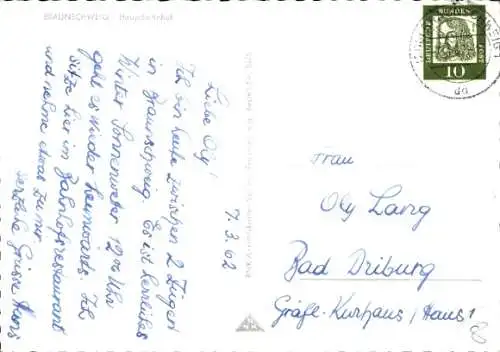 BRAUNSCHWEIG
7. 3. 62
Liebe Oly!
Ich bin heute zwischen 2 Zügen
in Braunschweig. Es ist herrliches
Winter Sonnenwetter. 12⁰⁰ Uhr
geht es wieder heimwärts. Ich
sitze hier im Bahnhofsrestaurant
und nehme etwas zu mir.
Herzliche Grüsse Hans
DEUTSCHE BUNDESPOST
10
Frau
Oly Lang
Bad Driburg
Gräfl. Kurhaus / Haus 1